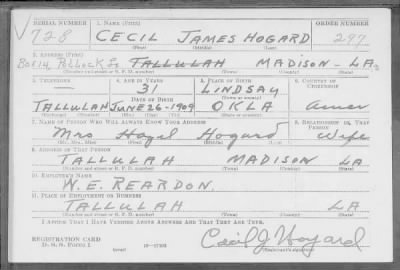 SERIAL NUMBER 1. NAME (Print) ORDER NUMBER
V728 CECIL JAMES HOGARD 297
(First) (Middle) (Last)
2. ADDRESS (Print)
Box 14, Pollock St TALLULAH MADISON - LA.
(Number and street or R. F. D. number) (Town) (County) (State)
3. TELEPHONE 4. AGE IN YEARS 5. PLACE OF BIRTH 6. COUNTRY OF CITIZENSHIP
31 LINDSAY
(Town or county)
DATE OF BIRTH
TALLULAH JUNE 26-1909 OKLA Amer
(Exchange) (Number) (Mo.) (Day) (Yr.) (State or country)
7. NAME OF PERSON WHO WILL ALWAYS KNOW YOUR ADDRESS 8. RELATIONSHIP OF THAT PERSON
Mrs Hazel Hogard Wife
(Mr., Mrs., Miss) (First) (Middle) (Last)
9. ADDRESS OF THAT PERSON
TALLULAH MADISON LA
(Number and street or R. F. D. number) (Town) (County) (State)
10. EMPLOYER'S NAME
W. E. REARDON.
11. PLACE OF EMPLOYMENT OR BUSINESS
TALLULAH LA
(Number and street or R. F. D. number) (Town) (County) (State)
I AFFIRM THAT I HAVE VERIFIED ABOVE ANSWERS AND THAT THEY ARE TRUE.
REGISTRATION CARD
D. S. S. FORM 1 (over) Cecil J Hogard
(Registrant's signature)